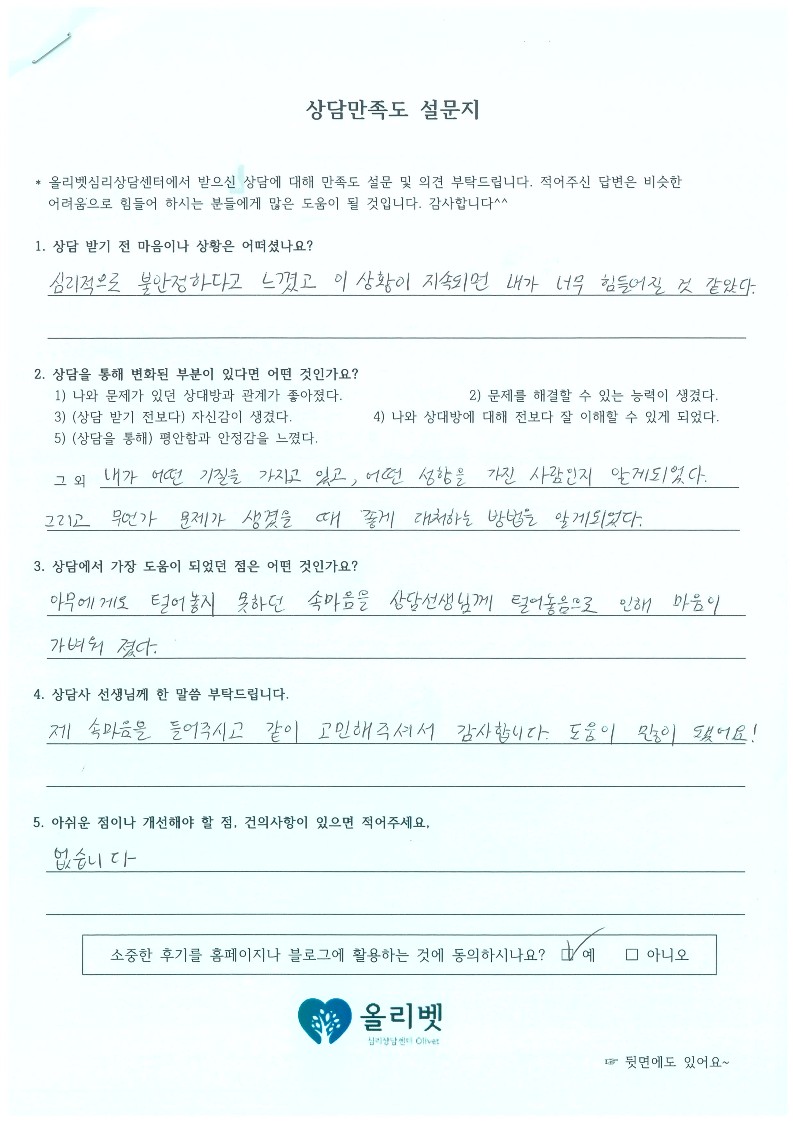 상담만족도 설문지
* 올리벳심리상담센터에서 받으신 상담에 대해 만족도 설문 및 의견 부탁드립니다. 적어주신 답변은 비슷한
어려움으로 힘들어 하시는 분들에게 많은 도움이 될 것입니다. 감사합니다^^
1. 상담 받기 전 마음이나 상황은 어떠셨나요?
심리적으로 불안정하다고 느꼈고 이 상황이 지속되면 내가 너무 힘들어질 것 같았다.
2. 상담을 통해 변화된 부분이 있다면 어떤 것인가요?
1) 나와 문제가 있던 상대방과 관계가 좋아졌다. 2) 문제를 해결할 수 있는 능력이 생겼다.
3) (상담 받기 전보다) 자신감이 생겼다. 4) 나와 상대방에 대해 전보다 잘 이해할 수 있게 되었다.
5) (상담을 통해) 평안함과 안정감을 느꼈다.
그 외 내가 어떤 기질을 가지고 있고, 어떤 성향을 가진 사람인지 알게되었다.
그리고 무언가 문제가 생겼을 때 좋게 대처하는 방법을 알게되었다.
3. 상담에서 가장 도움이 되었던 점은 어떤 것인가요?
아무에게도 털어놓지 못하던 속마음을 상담선생님께 털어놓음으로 인해 마음이
가벼워 졌다.
4. 상담사 선생님께 한 말씀 부탁드립니다.
제 속마음을 들어주시고 같이 고민해주셔서 감사합니다. 도움이 많이 됐어요!
5. 아쉬운 점이나 개선해야 할 점, 건의사항이 있으면 적어주세요.
없습니다
소중한 후기를 홈페이지나 블로그에 활용하는 것에 동의하시나요? ☑ 예 □ 아니오
올리벳
심리상담센터 Olivet
☞ 뒷면에도 있어요~